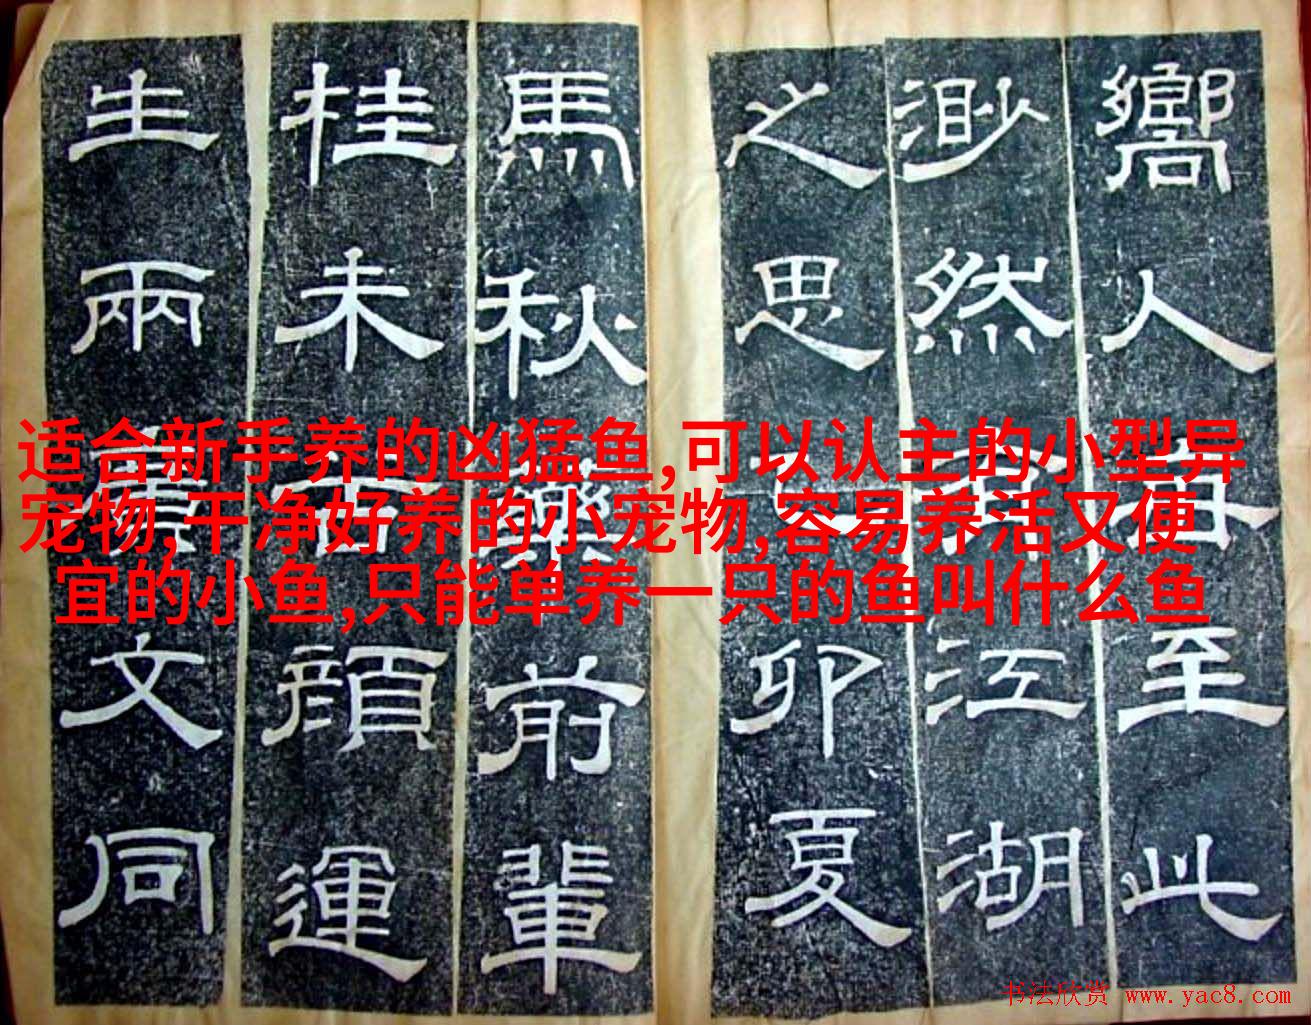 嚮人至此
渺然江湖
之思卯夏
馬秋藥前輩
桂未顏運
生兩文同
适合新手养的凶猛鱼,可以认主的小型异
宠物,干净好养的小宠物,容易养活又便
宜的小鱼,只能单养一只的鱼叫什么鱼
书法欣赏 www.yac8.com